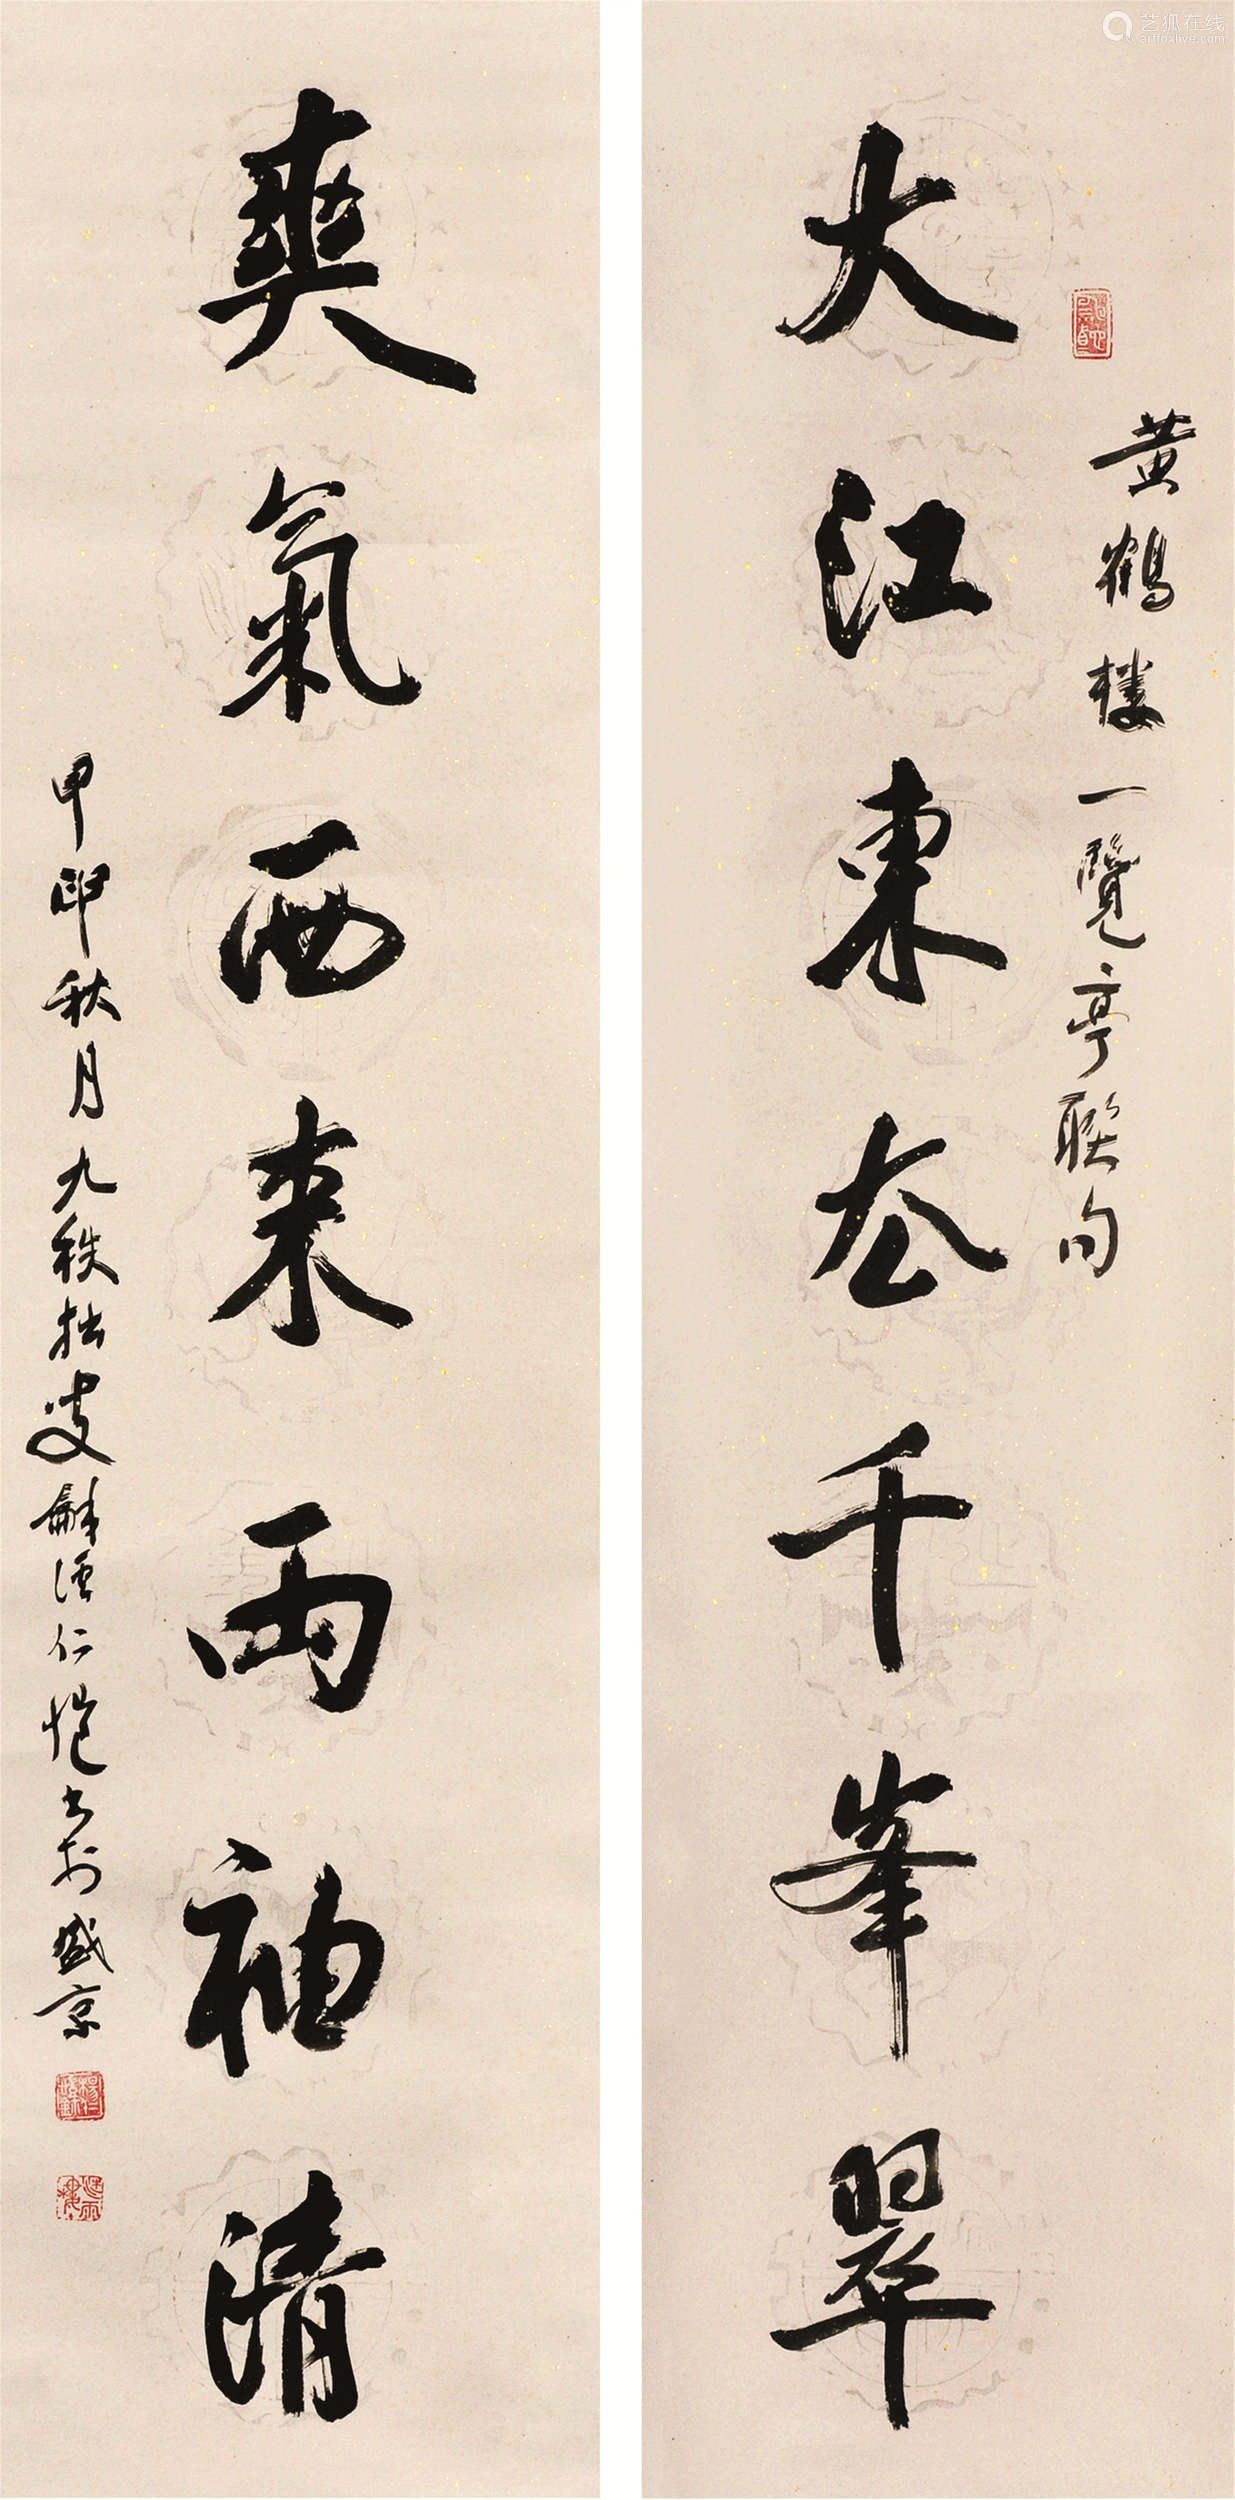 艺狐在线
artfoxlive.com
黄鶴樓一覽亭聯句
大江東去千峯翠
爽氣西来兩袖清
甲申秋月九秩拙叟龢溪仁愷书於盛京